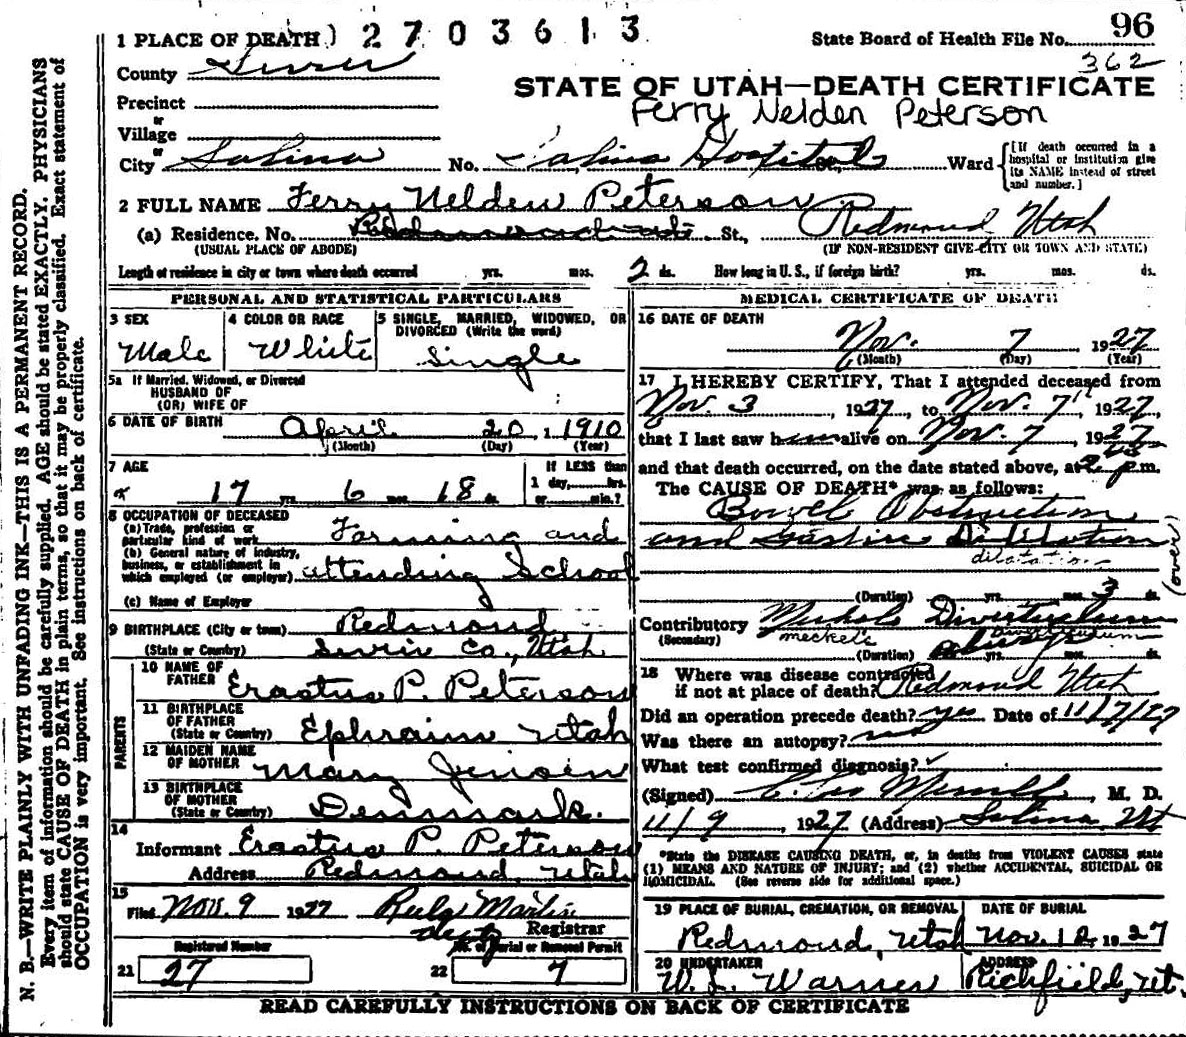 1 PLACE OF DEATH) 2 7 0 3 6 1 3
State Board of Health File No. 96
362
County Sevier
STATE OF UTAH—DEATH CERTIFICATE
Precinct
Ferry Nelden Peterson
or
Village
or
City Salina No. Salina Hospital St., Ward
[If death occurred in a hospital or institution give its NAME instead of street and number.]
2 FULL NAME Ferry Nelden Peterson
(a) Residence. No. St., Redmond Utah
(USUAL PLACE OF ABODE) (IF NON-RESIDENT GIVE CITY OR TOWN AND STATE)
Length of residence in city or town where death occurred yrs. mos. 2 ds. How long in U. S., if foreign birth? yrs. mos. ds.
PERSONAL AND STATISTICAL PARTICULARS
3 SEX Male
4 COLOR OR RACE White
5 SINGLE, MARRIED, WIDOWED, OR DIVORCED (Write the word) Single
5a If Married, Widowed, or Divorced
HUSBAND OF
(OR) WIFE OF
6 DATE OF BIRTH April 20, 1 1910
(Month) (Day) (Year)
7 AGE If LESS than
1 day, hrs.
17 yrs. 6 mos. 18 ds. or min.?
8 OCCUPATION OF DECEASED
(a) Trade, profession or particular kind of work Farming and
(b) General nature of industry, business, or establishment in which employed (or employer) attending School
(c) Name of Employer
9 BIRTHPLACE (City or town) Redmond
(State or Country) Sevier Co., Utah
PARENTS
10 NAME OF FATHER Erastus P. Peterson
11 BIRTHPLACE OF FATHER (State or Country) Ephraim Utah
12 MAIDEN NAME OF MOTHER Mary Jensen
13 BIRTHPLACE OF MOTHER (State or Country) Denmark.
14
Informant Erastus P. Peterson
Address Redmond, Utah
15
Filed Nov. 9 1927 Martin
Registrar
deputy
Registered Number No. of Burial or Removal Permit
21 27 22 7
MEDICAL CERTIFICATE OF DEATH
16 DATE OF DEATH
Nov. 7, 1927
(Month) (Day) (Year)
17 I HEREBY CERTIFY, That I attended deceased from
Nov. 3, 1927, to Nov. 7", 1927,
that I last saw him alive on Nov. 7, 1927
and that death occurred, on the date stated above, at 2 45 p.m.
The CAUSE OF DEATH* was as follows:
Bowel Obstruction
and Gastric Dilitation
dilatation
(over)
(Duration) yrs. mos. 3 ds.
Contributory Meckels Diverticulum
(Secondary) meckel's Diverticulum
(Duration) yrs. mos. ds.
18 Where was disease contracted
if not at place of death? Redmond Utah
Did an operation precede death? yes Date of 11/7/27
Was there an autopsy? no
What test confirmed diagnosis?
(Signed) Merrill, M. D.
11/9, 1927 (Address) Salina Ut
*State the DISEASE CAUSING DEATH, or, in deaths from VIOLENT CAUSES state
(1) MEANS AND NATURE OF INJURY; and (2) whether ACCIDENTAL, SUICIDAL OR
HOMICIDAL. (See reverse side for additional space.)
19 PLACE OF BURIAL, CREMATION, OR REMOVAL DATE OF BURIAL
Redmond, Utah Nov. 12 1927
20 UNDERTAKER ADDRESS
W. L. Warner Richfield, Ut.
READ CAREFULLY INSTRUCTIONS ON BACK OF CERTIFICATE
N. B.—WRITE PLAINLY WITH UNFADING INK—THIS IS A PERMANENT RECORD.
Every item of information should be carefully supplied. AGE should be stated EXACTLY. PHYSICIANS
should state CAUSE OF DEATH in plain terms, so that it may be properly classified. Exact statement of
OCCUPATION is very important. See instructions on back of certificate.